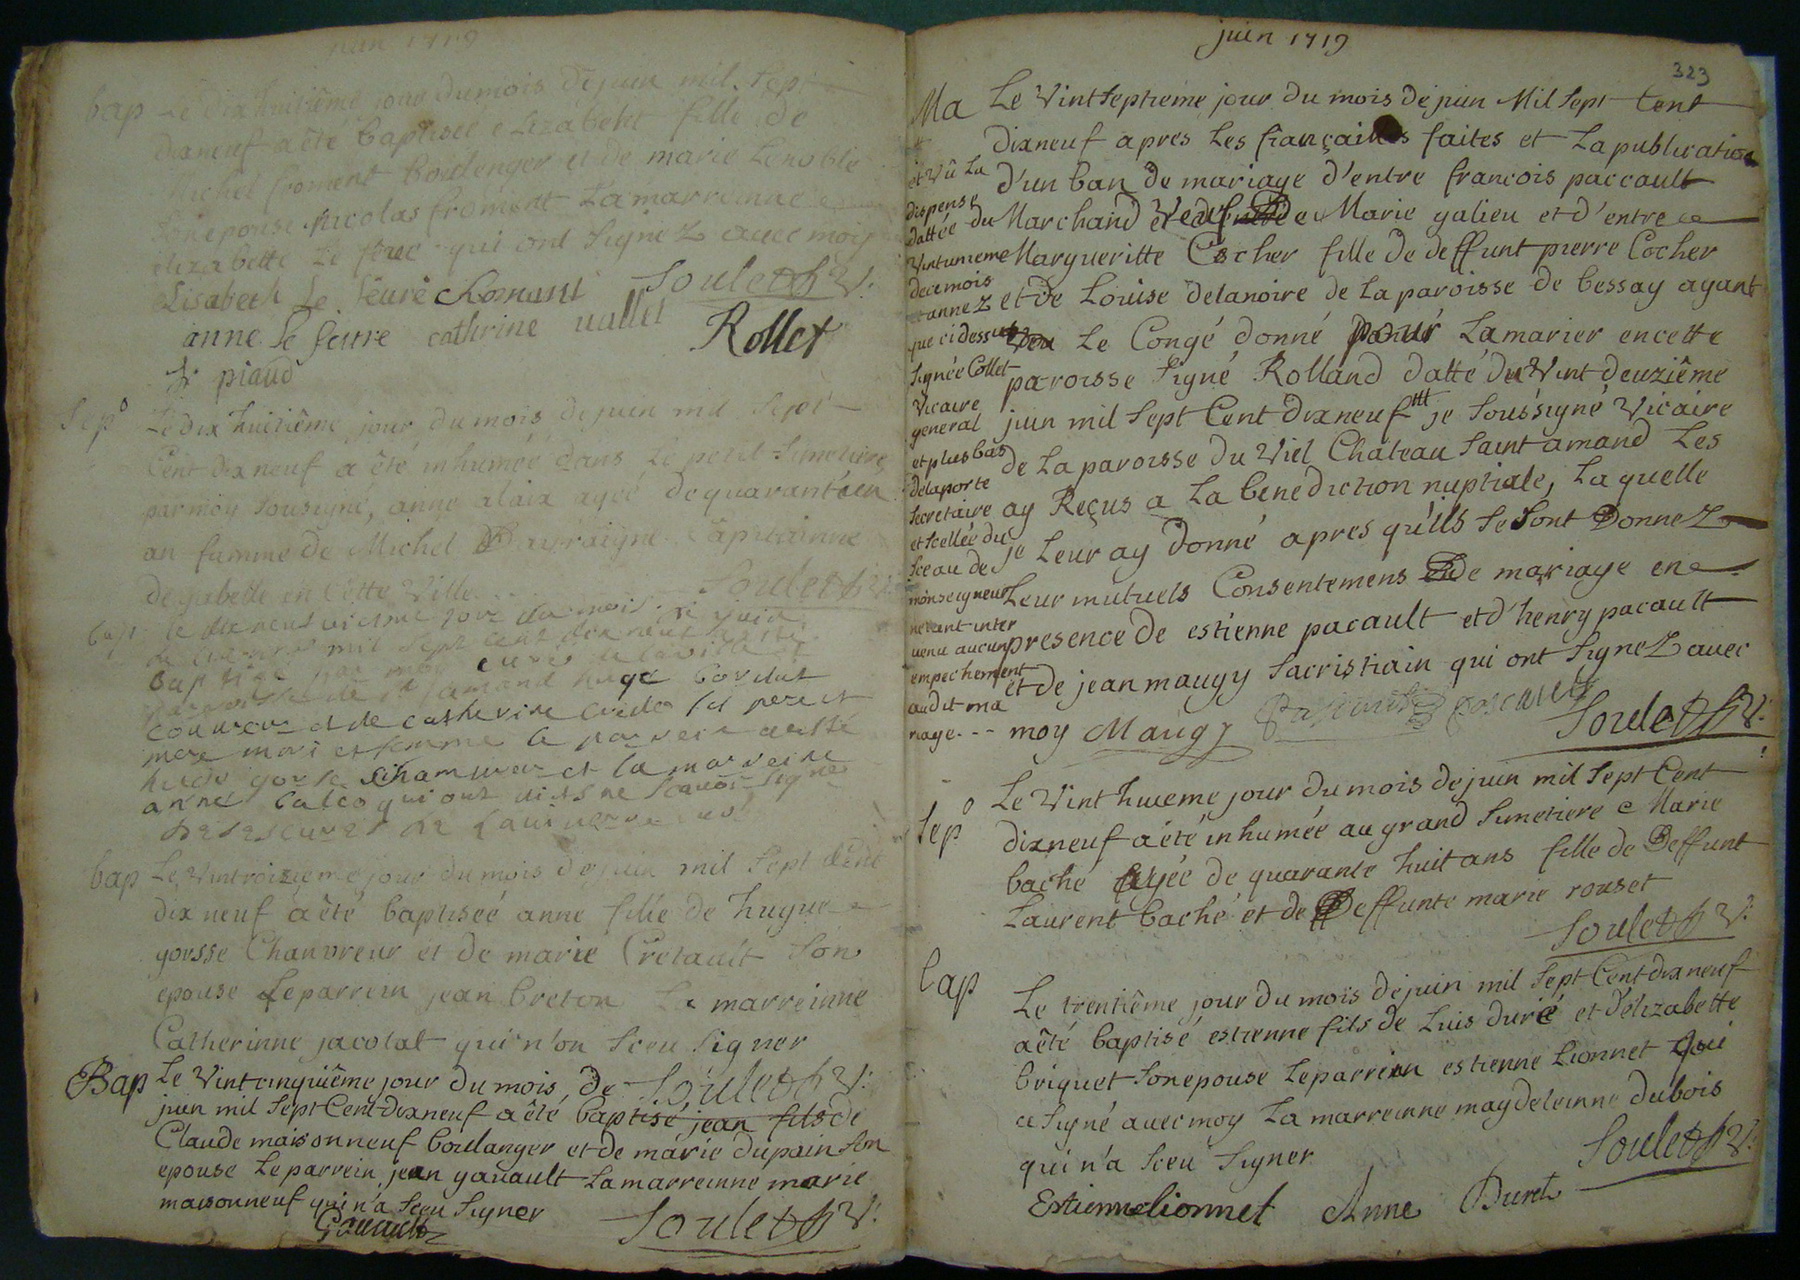 juin 1719
bap Le dix huitiême jour du mois de juin mil Sept
dixneuf a êté baptisée elizabelet fille de
Michel froment Boulenger et de marie Lenoble
Son epouse nicolas froment La marreinne
elizabette Le feuvre qui ont Signez avec moy
elisabeth Le feure froment Soulet V.
anne le feure cathrine vallet Rollet
piaud
Sep Le dix huitiême jour du mois de juin mil Sept
Cent dixneuf a êté inhumée dans le petit Simetiere
par moy Sousigné, anne alaix agée de quarantéun
an famme de Michel Capitainne
de gabelle en Cette Ville. Soulet V.
bap le dix neuf vieme jour du mois de juin
mil sept cent dix neuf
baptizé par moy curé de
paroisse de St amand hugue
couvreur et de catherine ses pere et
mere mari et femme le parrein a esté
hugue gorse chanvreur et la marreine
anne qui ont dit ne scavoir signer
bap Le Vintroisieme jour du mois de juin mil Sept Cent
dix neuf a êté baptiseé anne fille de hugue
gorsse Chanvreur et de marie Cretault Son
epouse Le parrein jean breton La marreinne
Catherinne jacolat qui n'on Sceu Signer
Soulet V.
Bap Le Vintcinquiême jour du mois de
juin mil Sept Cent dixneuf a êté baptisé jean fils de
Claude maisonneuf boulanger et de marie dupain Son
epouse Le parrein jean gavault La marreinne marie
maisonneuf qui n'a Sceu Signer
Gavault Soulet V.
juin 1719
323
Ma Le Vintseptieme jour du mois de juin Mil Sept Cent
dixneuf apres Les fiançailles faites et La publication
d'un ban de mariage d'entre francois paccault
Marchand Veuf de Marie galieu et d'entre
Margueritte Cocher fille de deffunt pierre Cocher
et de Louise delanoire de La paroisse de bessay ayant
Le Congé donné pour La marier en cette
paroisse Signé Rolland datté du Vint deuziême
juin mil Sept Cent dixneuf je Soussigné Vicaire
de La paroisse du Viel Château Saint amand Les
ay Reçus a La benediction nuptiale, La quelle
je Leur ay donné apres qu'ils Se Sont Donnez
Leur mutuels Consentemens de mariage en
presence de estienne pacault et d'henry pacault
et de jean maugy Sacristiain qui ont Signez avec
moy Maugy Soulet V.
et vû La
dispense
dattée du
Vintunieme
dece mois
et annez
que cidessus
Signée Collet
Vicaire
general
et plus bas
delaporte
Secretaire
et Scellée du
Sceau de
monseigneur
netant inter
venu aucun
empechement
audit ma
riage. --
Sep Le Vint huieme jour du mois de juin mil Sept Cent
dixneuf a été inhumée au grand Simetiere Marie
baché agée de quarante huit ans fille de Deffunt
Laurent baché et de Deffunte marie rouset
Soulet V.
bap Le trentiême jour du mois de juin mil Sept Cent dixneuf
a êté baptisé estienne fils de Luis duré et d'elizabette
briquet Son epouse Le parrein estienne Lionnet qui
a Signé avec moy La marreinne magdeleinne dubois
qui n'a Sceu Signer Soulet V.
Estienne lionnet Anne Duret